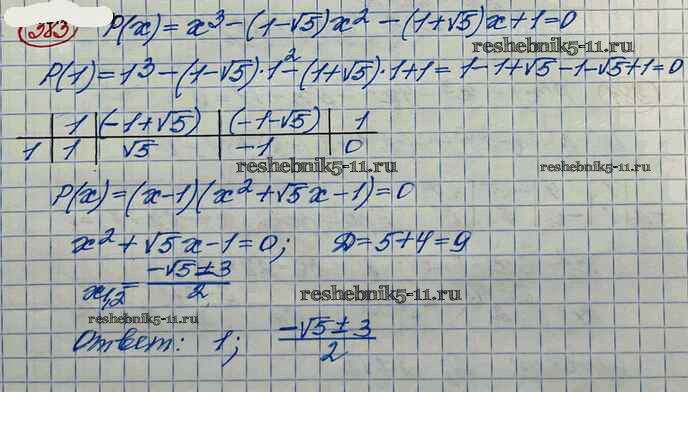 383 P(x) = x³ - (1-√5)x² - (1+√5)x + 1 = 0
reshebnik5-11.ru
P(1) = 1³ - (1-√5)·1² - (1+√5)·1 + 1 = 1 - 1 + √5 - 1 - √5 + 1 = 0
1 | (-1+√5) | (-1-√5) | 1
1 | 1 | √5 | -1 | 0
reshebnik5-11.ru reshebnik5-11.ru
P(x) = (x-1)(x² + √5x - 1) = 0
x² + √5x - 1 = 0; D = 5 + 4 = 9
x₁,₂ = (-√5 ± 3)/2
reshebnik5-11.ru
reshebnik5-11.ru
Ответ: 1; (-√5 ± 3)/2